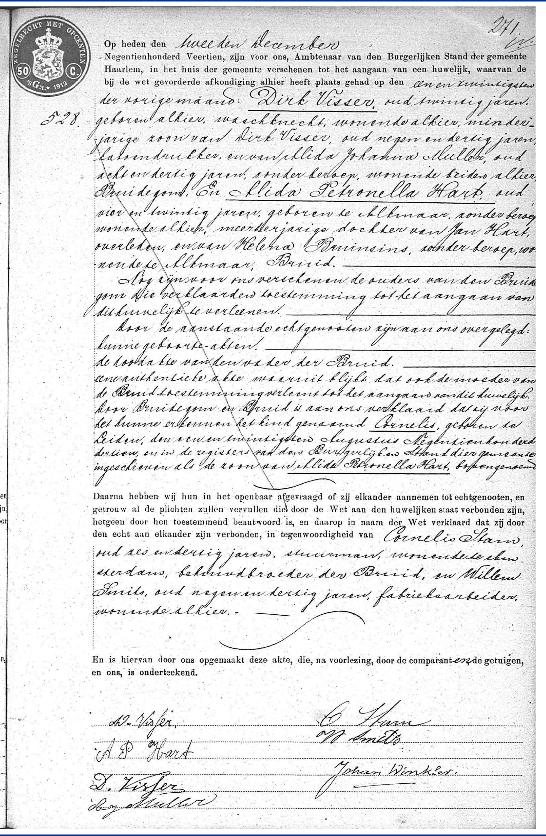 271
ZEGELRECHT MET OPCENTEN
50 C.
Op heden den tweeden December
Negentienhonderd Veertien, zijn voor ons, Ambtenaar van den Burgerlijken Stand der gemeente
Haarlem, in het huis der gemeente verschenen tot het aangaan van een huwelijk, waarvan de
bij de wet gevorderde afkondiging alhier heeft plaats gehad op den een en twintigsten
528.
der vorige maand: Dirk Visser, oud twintig jaren,
geboren alhier, waschknecht, wonende alhier, minder-
jarige zoon van Dirk Visser, oud negen en dertig jaren,
katoendrukker, en van Alida Johanna Muller, oud
acht en dertig jaren, zonder beroep, wonende beiden alhier,
Bruidegom. En Alida Petronella Hart, oud
vier en twintig jaren, geboren te Alkmaar, zonder beroep,
wonende alhier, meerderjarige dochter van Jan Hart,
overleden, en van Helena Bruinsins, zonder beroep, wo-
nende te Alkmaar, Bruid.
Nog zijn voor ons verschenen de ouders van den Bruide
gom die verklaarden toestemming tot het aangaan van
dit huwelijk te verleenen.
Door de aanstaande echtgenooten zijn aan ons overgelegd:
hunne geboorte-akten.
de doodakte van den vader der Bruid.
een authentieke akte waaruit blijkt dat ook de moeder van
de Bruid toestemming verleent tot het aangaan van dit huwelijk.
Door Bruidegom en Bruid is aan ons verklaard dat zij voor
het hunne erkennen het kind genaamd Cornelis, geboren te
Leiden, den een en twintigsten Augustus Negentienhonderd
dertien, en in de registers van den Burgerlijken Stand dier gemeente
ingeschreven als de zoon van Alida Petronella Hart, bovengenoemd
Daarna hebben wij hun in het openbaar afgevraagd of zij elkander aannemen tot echtgenooten, en
getrouw al de plichten zullen vervullen die door de Wet aan den huwelijken staat verbonden zijn,
hetgeen door hen toestemmend beantwoord is, en daarop in naam der Wet verklaard dat zij door
den echt aan elkander zijn verbonden, in tegenwoordigheid van Cornelis Stam,
oud zes en dertig jaren, stuurman, wonende te Am
sterdam, behuwdbroeder der Bruid, en Willem
Smits, oud negen en dertig jaren, fabrieksarbeider,
wonende alhier.
En is hiervan door ons opgemaakt deze akte, die, na voorlezing, door de comparanten de getuigen,
en ons, is onderteekend.
D. Visser.
C Stam
W Smits
A P Hart
Johan Winkler.
D. Visser
Muller